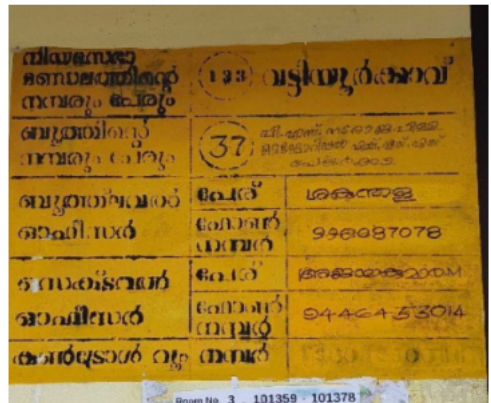 നിയമസഭാ
മണ്ഡലത്തിന്റെ
നമ്പരും പേരും
133 വട്ടിയൂർക്കാവ്
ബൂത്തിന്റെ
നമ്പരും പേരും
37
ബൂത്ത് ലവൽ
ഓഫീസർ
പേര് ശകുന്തള
ഫോൺ
നമ്പർ
സെക്ടറൽ
ഓഫീസർ
പേര് അജയകുമാർ M
ഫോൺ
നമ്പർ
9446453014
കൺട്രോൾ റൂം നമ്പർ
Room No. 3 101359 101378